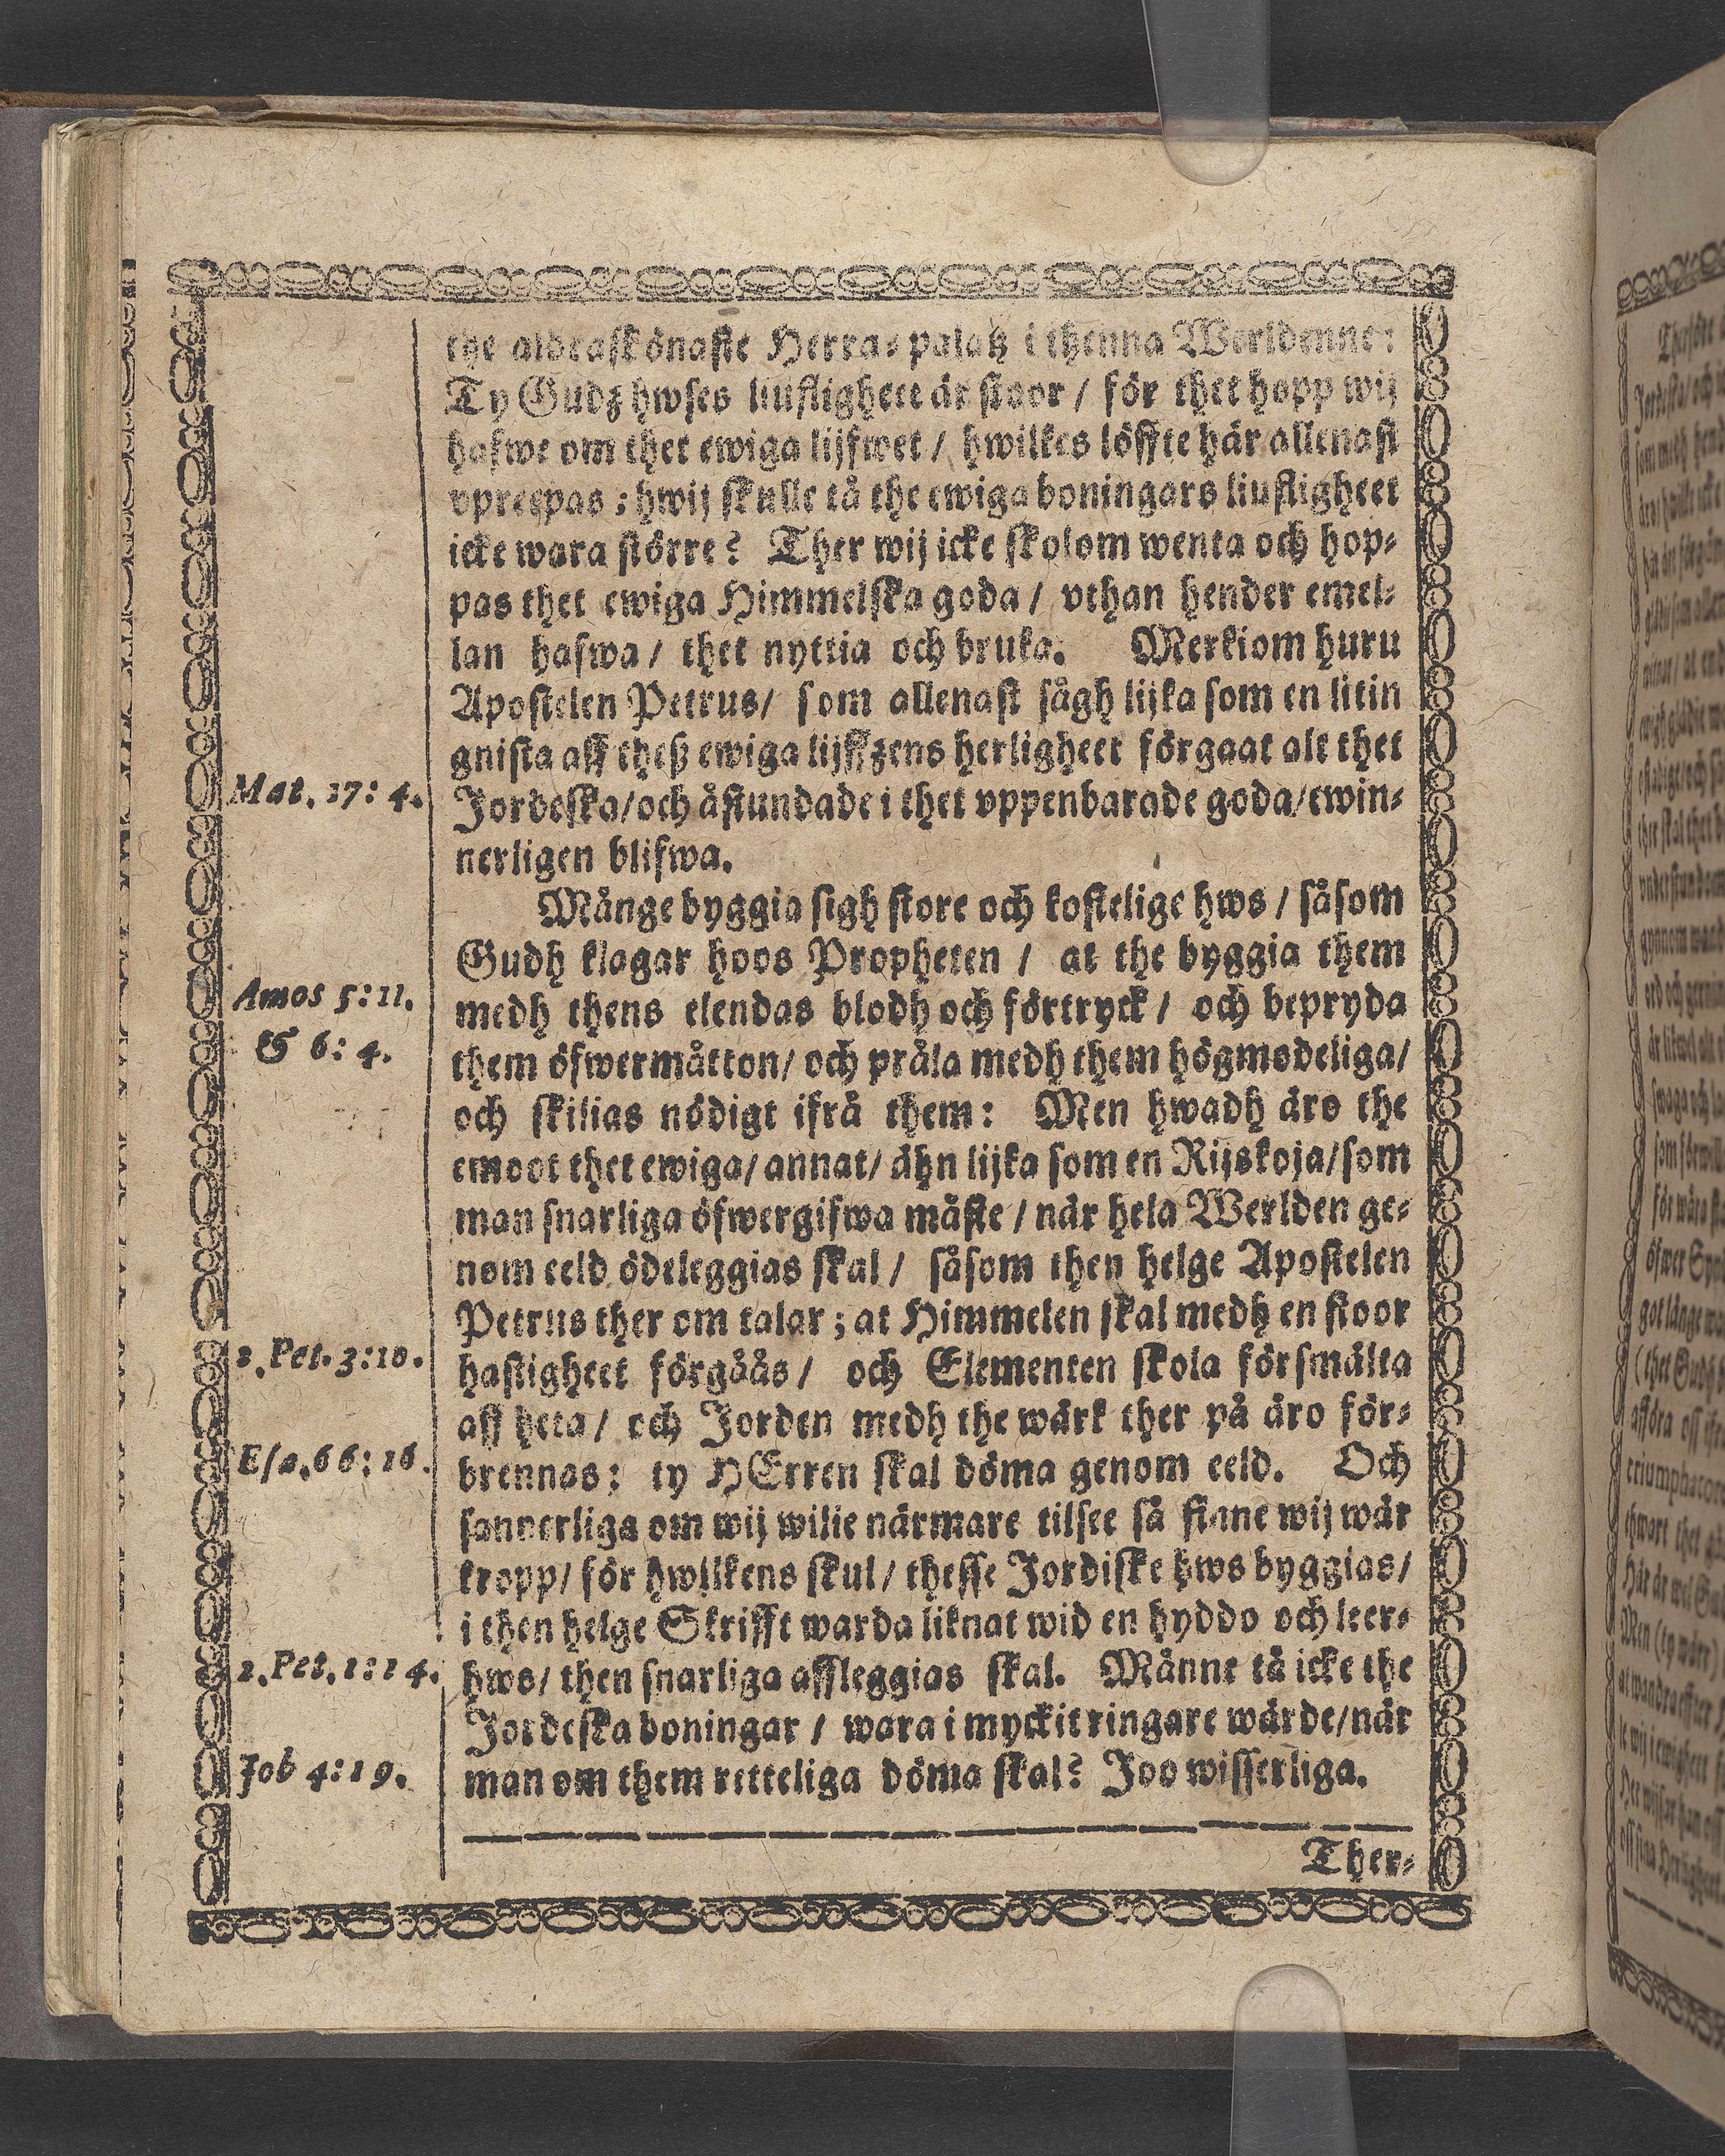 the aldraskönaste Herra-palatz i thenna Werldenne:
Ty Gudz hwses liufligheet är stoor / för thet hopp wij
hafwe om thet ewiga lijfwet / hwilkes löffte här allenast
vprepas ; hwij skulle tå the ewiga boningars liufligheet
icke wara större? Ther wij icke skolom wenta och hop-
pas thet ewiga Himmelska goda / vthan hender emel-
lan hafwa / thet nyttia och bruka. Merkiom huru
Mat. 17: 4.
Apostelen Petrus / som allenast sågh lijka som en litin
gnista aff theß ewiga lijffzens herligheet förgaat alt thet
Jordeska / och åstundade i thet vppenbarade goda / ewin-
nerligen blifwa.
Månge byggia sigh store och kostelige hws / såsom
Amos 5: 11.
& 6: 4.
Gudh klagar hoos Propheten / at the byggia them
medh thens elendas blodh och förtryck / och bepryda
them öfwermåtton / och pråla medh them högmodeliga /
och skilias nödigt ifrå them: Men hwadh äro the
emoot thet ewiga / annat / ähn lijka som en Rijskoja / som
man snarliga öfwergifwa måste / när hela Werlden ge-
nom eeld ödeleggias skal / såsom then helge Apostelen
2. Pet. 3: 10.
Petrus ther om talar ; at Himmelen skal medh en stoor
hastigheet förgåås / och Elementen skola försmälta
aff heta / och Jorden medh the wärk ther på äro för-
Esa. 66: 16.
brennas: ty HErren skal döma genom eeld. Och
sannerliga om wij wilie närmare tilsee så finne wij wår
kropp / för hwilkens skul / thesse Jordiske hws byggias /
i then helge Skrifft warda liknat wid en hyddo och leer-
2. Pet. 1: 14.
hws / then snarliga affleggias skal. Månne tå icke the
Jordeska boningar / wara i myckit ringare wärde / när
Job 4: 19.
man om them retteliga döma skal? Joo wisserliga.
Ther-